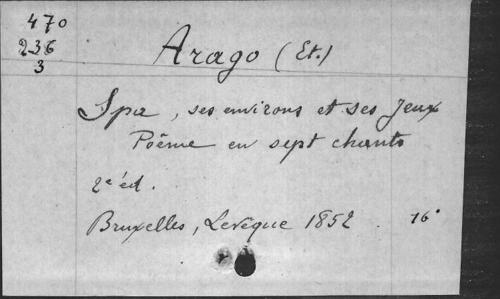 470
236
3
Arago (Et.)
Spa, ses environs et ses Jeux
Poême en sept chants
2e éd.
Bruxelles, Levêque 1852. 16°